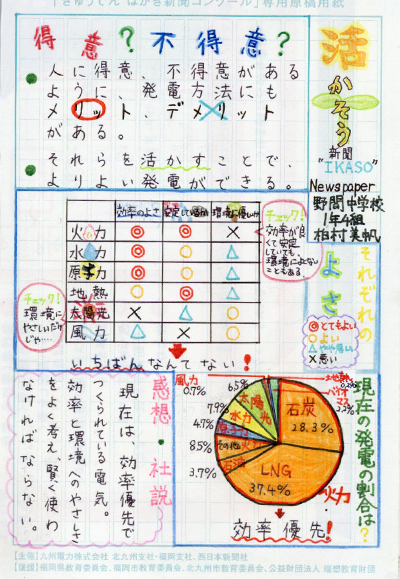 「きゅうでん はがき新聞コンクール」専用原稿用紙
活かそう
新聞
"IKASO"
Newspaper
野間中学校
1年4組
得意?不得意?
人に得意、不得意がある
ように、発電方法にも
メリット、デメリット
がある。
それらを活かすことで、
よりよい発電ができる。
それぞれのよさ
◎とてもよい
○よい
△やや悪い
×悪い
効率のよさ 安定しているか 環境に優しいか
火力 ◎ ◎ ×
水力 ◎ ○ △
原子力 ◎ ○ △
地熱 ○ ◎ △
太陽光 × △ ○
風力 △ × ○
チェック!
効率が良
くて安定
していても、
環境によくない
こともある。
チェック!
環境に
やさしいだけ
じゃ……
いちばんなんてない!
現在の発電の割合は?
石炭
28.3%
LNG
37.4%
火力
石油
3.7%
その他
8.5%
原子力
4.7%
水力
7.9%
太陽光
風力
0.7%
地熱
バイオマス
効率優先!
感想・社説
現在は、効率優先で
つくられている電気。
効率と環境へのやさしさ
をよく考え、賢く使わ
なければならない。
【主催】九州電力株式会社 北九州支社・福岡支社、西日本新聞社
【後援】福岡県教育委員会、福岡市教育委員会、北九州市教育委員会、公益財団法人 理想教育財団